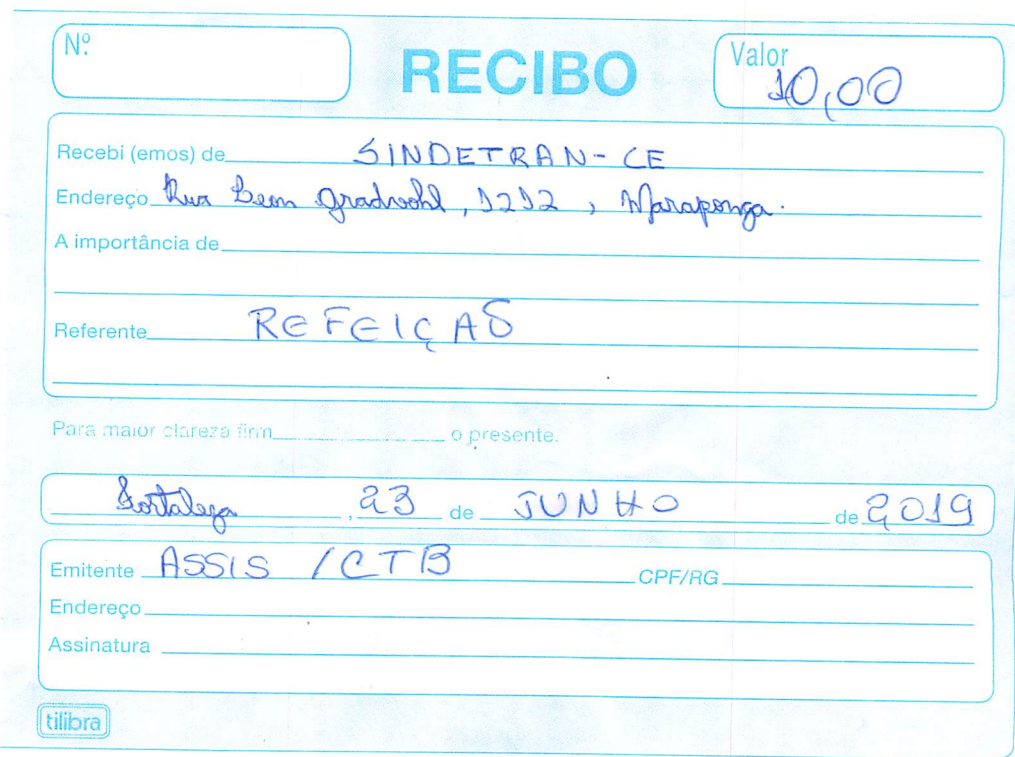 Nº
RECIBO
Valor
10,00
Recebi (emos) de SINDETRAN-CE
Endereço Rua Leon Gradvohl, 1212, Maraponga.
A importância de
Referente REFEIÇÃO
Para maior clareza firm o presente.
Fortaleza, 23 de JUNHO de 2019
Emitente ASSIS / CTB CPF/RG
Endereço
Assinatura
tilibra